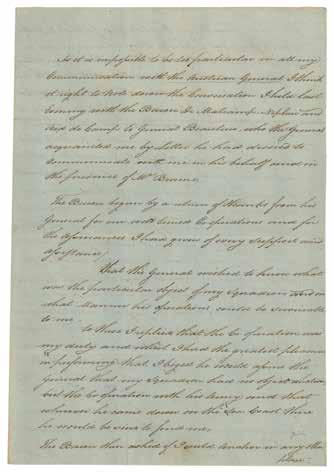 As it is impossible to be too particular in all my
Communication with the Austrian General I think
it right to Note down the Conversation I held last
Evening with the Baron De Malcamp Nephew and
Aid de Camp to General Beaulieu, who the General
acquainted me by Letter he had desired to
communicate with me in his behalf and in
the presence of Mr Brame.
The Baron began by a return of thanks from his
General for my with and for
the Assurances I had given of every Support and
Assistance,
That the General wished to know what
was the particular object of my Squadron and in
what Manner his Operations could be serviceable
to me.
to this I replied that the Co operation was
my duty and which I had the greatest pleasure
in performing that I begged he would assure the
General that my Squadron had no object
but the Co operation with his Army and that
whenever he came down on the Sea Coast there
he would be sure to find me.
The Baron then asked if I could in any other
place